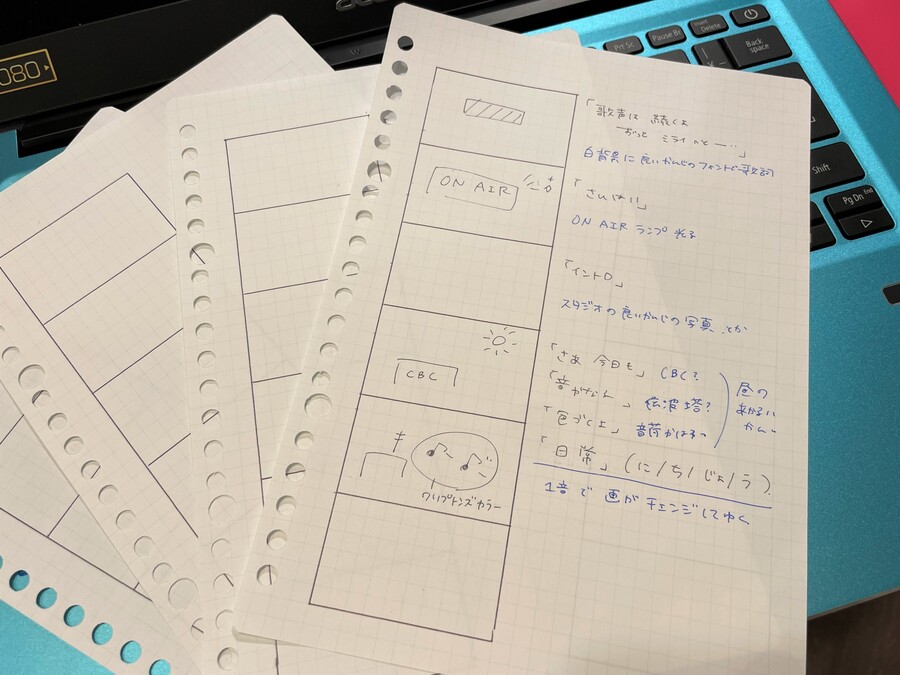 「歌声は 続くよ
ずっと ミライへと ー…」
白背景に良いかんじのフォントで歌詞
ON AIR
「さんはい!」
ON AIR ランプ 光る
「イントロ」
スタジオの良いかんじの写真 とか
「さあ 今日も」 CBC?
CBC
「音がなん 」 伝波塔?
「色づくよ」 音符がはねっ
昼の
あかるい
かんじ
「日常」 (に/ち/じょ/う)
クリプトンズカラー
1音で 画が チェンジしてゆく
080
acer
Prt Sc
Pause Br
Insert
Delete
Back
space
Shift
Pg Dn
End